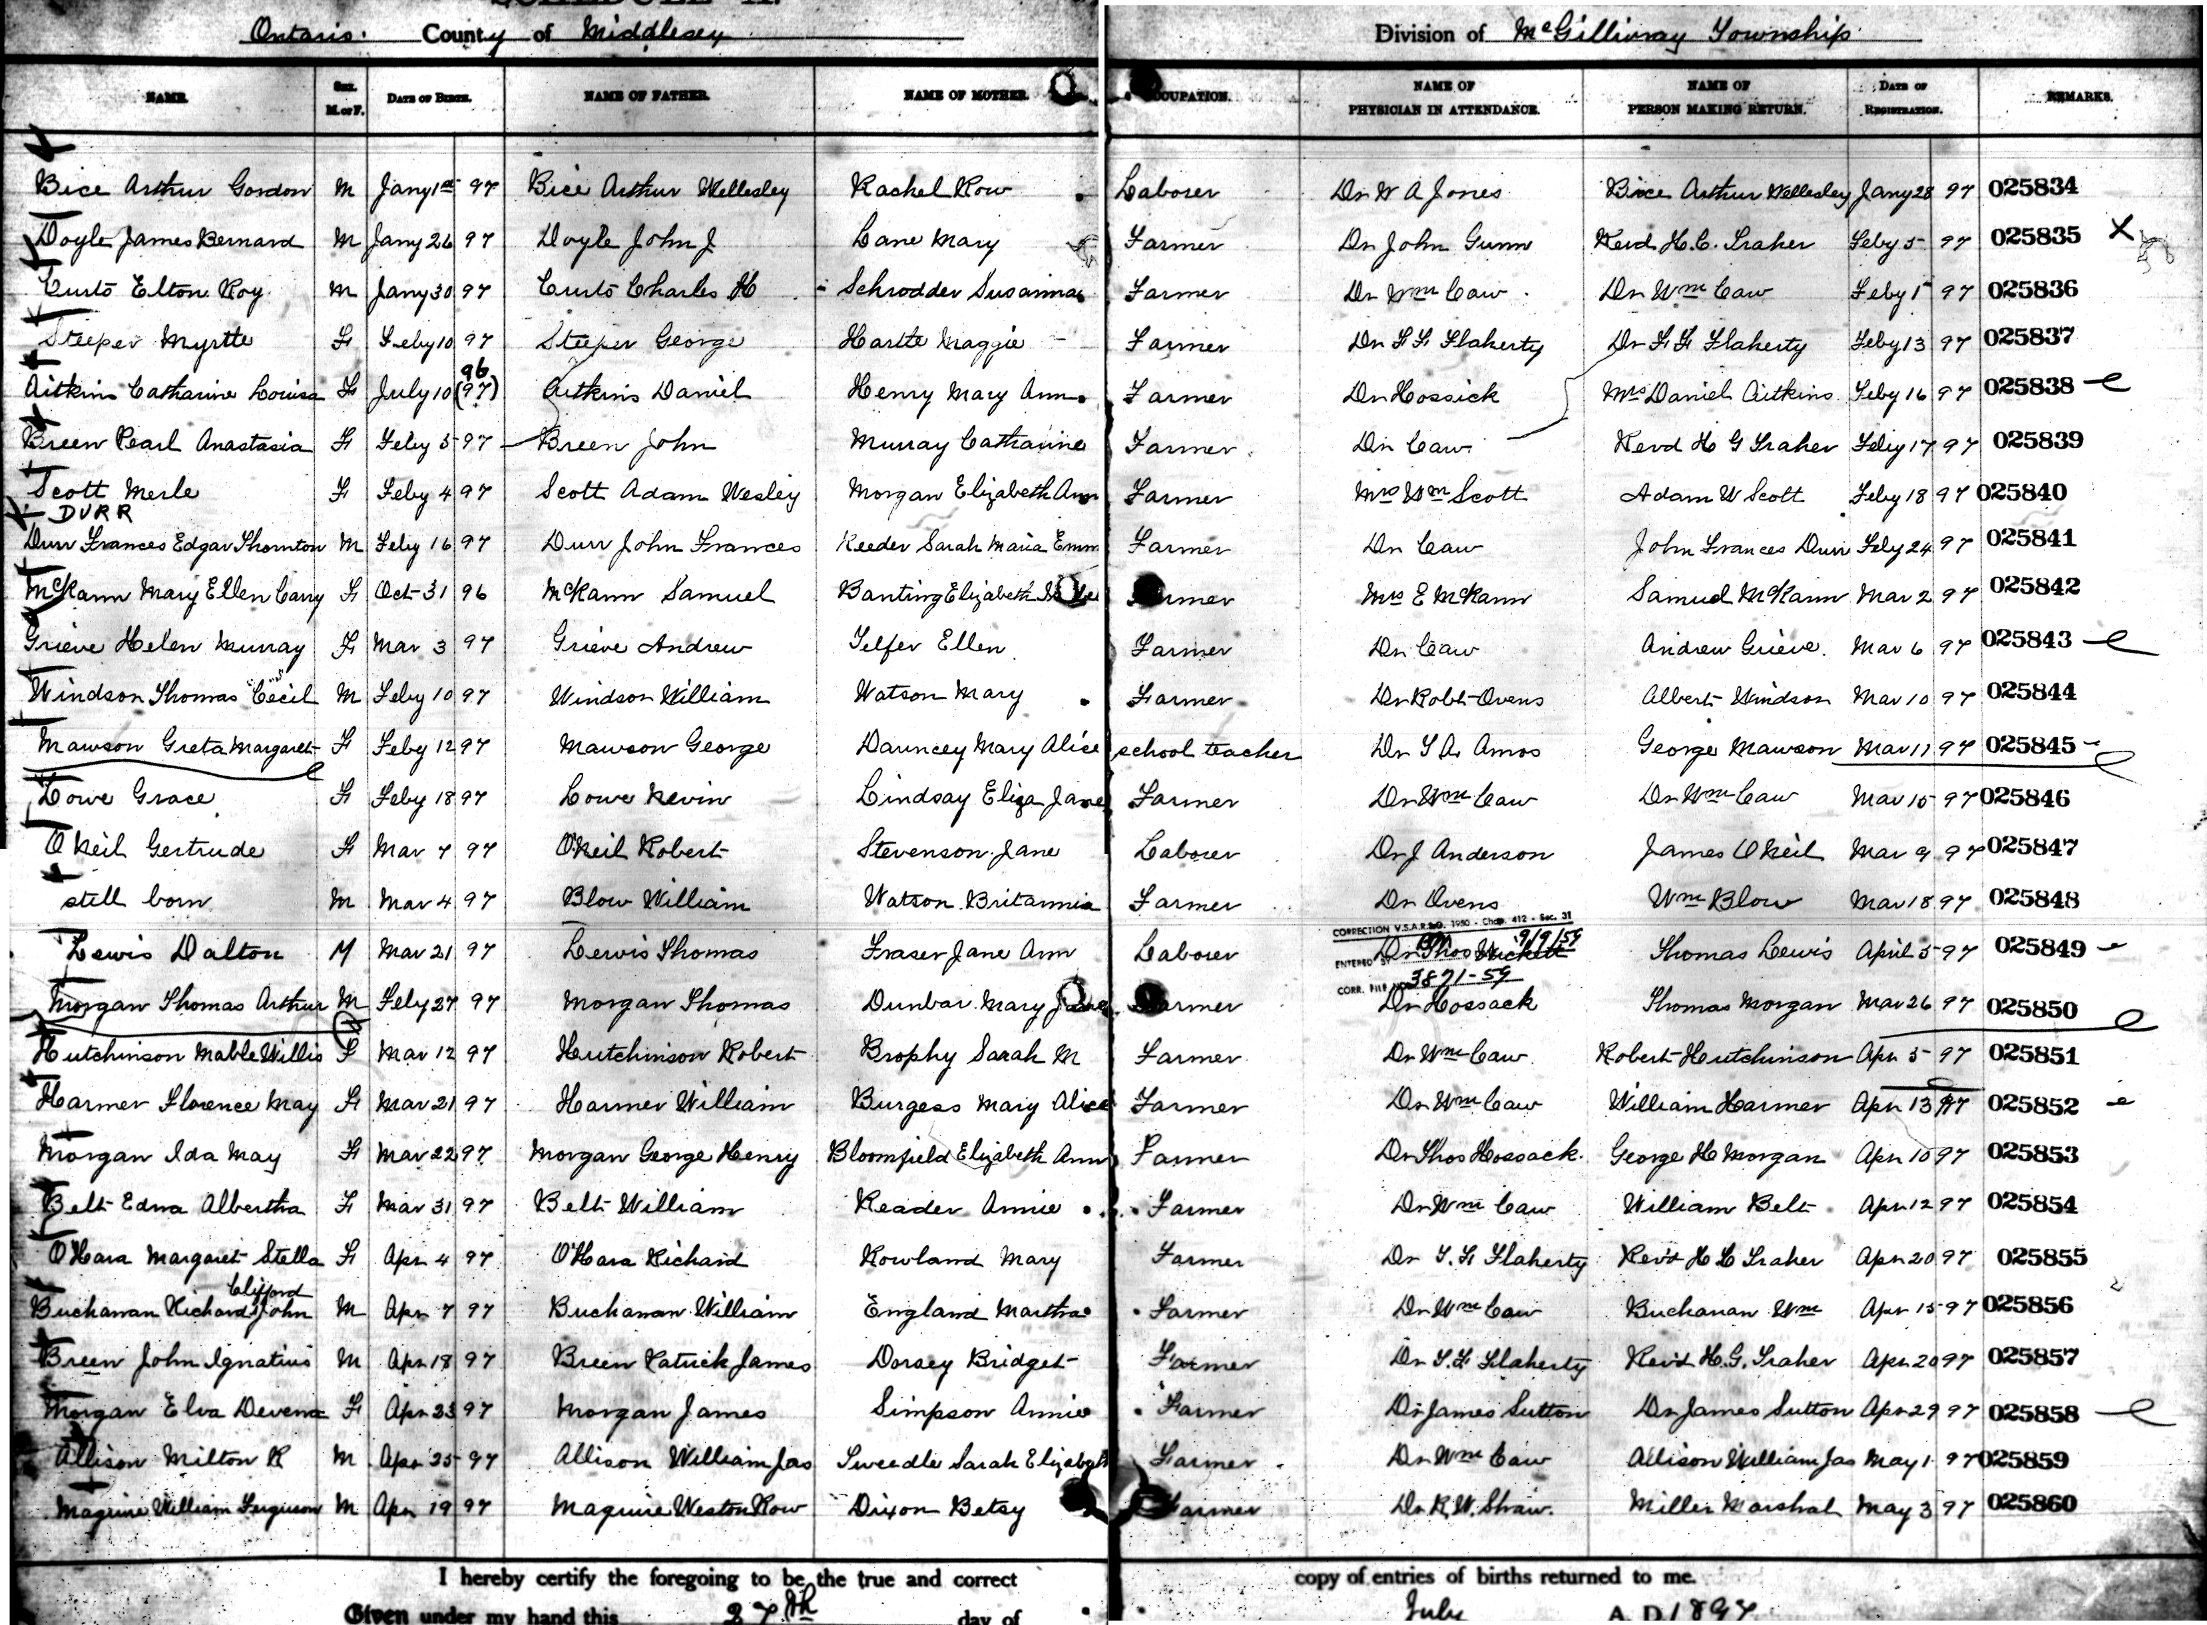 Ontario. County of Middlesex Division of McGillivray Township
NAME. SEX. M. or F. DATE OF BIRTH. NAME OF FATHER. NAME OF MOTHER. OCCUPATION. NAME OF PHYSICIAN IN ATTENDANCE. NAME OF PERSON MAKING RETURN. DATE OF REGISTRATION. REMARKS.
Bice Arthur Gordon M Jany 1st 97 Bice Arthur Wellesley Rachel Row Laborer Dr W A Jones Bice Arthur Wellesley Jany 28 97 025834
Doyle James Bernard M Jany 26 97 Doyle John J Lane Mary Farmer Dr John Gunn Revd H.C. Traher Feby 5 97 025835 X
Curts Elton Roy M Jany 30 97 Curts Charles H Schrodder Susanna Farmer Dr Wm Caw Dr Wm Caw Feby 1st 97 025836
Steeper Myrtle F Feby 10 97 Steeper George Hartle Maggie Farmer Dr F F Flaherty Dr F F Flaherty Feby 13 97 025837
96
Aitkins Catharine Louisa F July 10 (97) Aitkins Daniel Henry Mary Ann Farmer Dr Hossick Mrs Daniel Aitkins Feby 16 97 025838
Breen Pearl Anastasia F Feby 5 97 Breen John Murray Catharine Farmer Dr Caw Revd H G Traher Feby 17 97 025839
Scott Merle F Feby 4 97 Scott Adam Wesley Morgan Elizabeth Ann Farmer Mrs Wm Scott Adam W Scott Feby 18 97 025840
DURR
Durr Frances Edgar Thornton M Feby 16 97 Durr John Frances Reeder Sarah Maria Emm Farmer Dr Caw John Frances Durr Feby 24 97 025841
McKann Mary Ellen Carry F Oct 31 96 McKann Samuel Banting Elizabeth Farmer Mrs E McKann Samuel McKann Mar 2 97 025842
Grieve Helen Murray F Mar 3 97 Grieve Andrew Telfer Ellen Farmer Dr Caw Andrew Grieve. Mar 6 97 025843
Windson Thomas Cecil M Feby 10 97 Windson William Watson Mary Farmer Dr Robt Ovens Albert Windson Mar 10 97 025844
Mawson Greta Margaret F Feby 12 97 Mawson George Dauncey Mary Alice school teacher Dr T A Amos George Mawson Mar 11 97 025845
Lowe Grace F Feby 18 97 Lowe Nevin Lindsay Eliza Jane Farmer Dr Wm Caw Dr Wm Caw Mar 15 97 025846
O'Neil Gertrude F Mar 7 97 O'Neil Robert Stevenson Jane Laborer Dr J Anderson James O'Neil Mar 9 97 025847
still born M Mar 4 97 Blow William Watson Britannia Farmer Dr Ovens Wm Blow Mar 18 97 025848
CORRECTION V.S.A.R.S.O. 1950 - Chap. 412 - Sec. 31
ENTERED BY 9/9/59
Lewis Dalton M Mar 21 97 Lewis Thomas Fraser Jane Ann Laborer Dr Thos Wickett Thomas Lewis April 5 97 025849
CORR. FILE NO. 3871-59
Morgan Thomas Arthur M Feby 27 97 Morgan Thomas Dunbar Mary Jane Farmer Dr Hossack Thomas Morgan Mar 26 97 025850
Hutchinson Mable Willis F Mar 12 97 Hutchinson Robert Brophy Sarah M Farmer Dr Wm Caw Robert Hutchinson Apr 5 97 025851
Harmer Florence May F Mar 21 97 Harmer William Burgess Mary Alice Farmer Dr Wm Caw William Harmer Apr 13 97 025852
Morgan Ida May F Mar 22 97 Morgan George Henry Bloomfield Elizabeth Ann Farmer Dr Thos Hossack George H Morgan Apr 10 97 025853
Belt Edna Albertha F Mar 31 97 Belt William Reader Annie Farmer Dr Wm Caw William Belt Apr 12 97 025854
O'Hara Margaret Stella F Apr 4 97 O'Hara Richard Rowland Mary Farmer Dr T. F Flaherty Revd H G Traher Apr 20 97 025855
Clifford
Buchanan Richard John M Apr 7 97 Buchanan William England Martha Farmer Dr Wm Caw Buchanan Wm Apr 15 97 025856
Breen John Ignatius M Apr 18 97 Breen Patrick James Dorsey Bridget Farmer Dr T. F Flaherty Revd H. G. Traher Apr 20 97 025857
Morgan Elva Devena F Apr 23 97 Morgan James Simpson Annie Farmer Dr James Sutton Dr James Sutton Apr 29 97 025858
Allison Milton R M Apr 25 97 Allison William Jas Tweedle Sarah Elizabeth Farmer Dr Wm Caw Allison William Jas May 1 97 025859
Maguire William Ferguson M Apr 19 97 Maguire Weston Row Dixon Betsy Farmer Dr R. W. Shaw. Miller Marshal May 3 97 025860
I hereby certify the foregoing to be the true and correct copy of entries of births returned to me.
Given under my hand this 27th day of July A. D. 1897